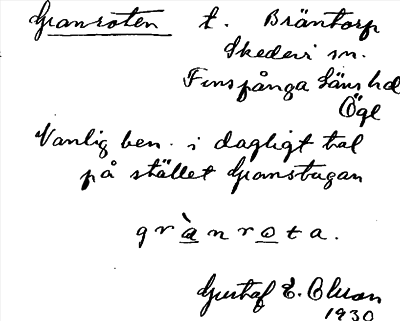 Granroten t. Bräntorp
Skedevi sn.
Finspånga läns hd
Ögl
Vanlig ben. i dagligt tal
på stället Granstugan
grànrota.
Gustaf E. Olson
1930